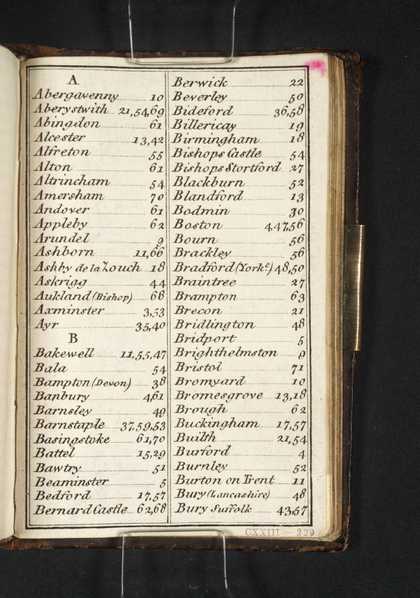 A
Abergavenny 10
Aberystwith 21,54,69
Abingdon 61
Alcester 13,42
Alfreton 55
Alton 61
Altrincham 54
Amersham 70
Andover 61
Appleby 62
Arundel 9
Ashborn 11,66
Ashby de la Zouch 18
Askrigg 44
Aukland (Bishop) 68
Axminster 3,53
Ayr 35,40
B
Bakewell 11,55,47
Bala 54
Bampton (Devon) 38
Banbury 4,61
Barnsley 49
Barnstaple 37,59,53
Basingstoke 61,70
Battel 15,29
Bawtry 51
Beaminster 5
Bedford 17,57
Bernard Castle 62,68
Berwick 22
Beverley 50
Bideford 36,58
Billericay 19
Birmingham 18
Bishops Castle 54
Bishops Stortford 27
Blackburn 52
Blandford 13
Bodmin 30
Boston 4,47,56
Bourn 56
Brackley 56
Bradford (Yorke) 48,50
Braintree 27
Brampton 63
Brecon 21
Bridlington 48
Bridport 5
Brighthelmston 9
Bristol 71
Bromyard 10
Bromesgrove 13,18
Brough 62
Buckingham 17,57
Builth 21,54
Burford 4
Burnley 52
Burton on Trent 11
Bury (Lancashire) 48
Bury Suffolk 43,57